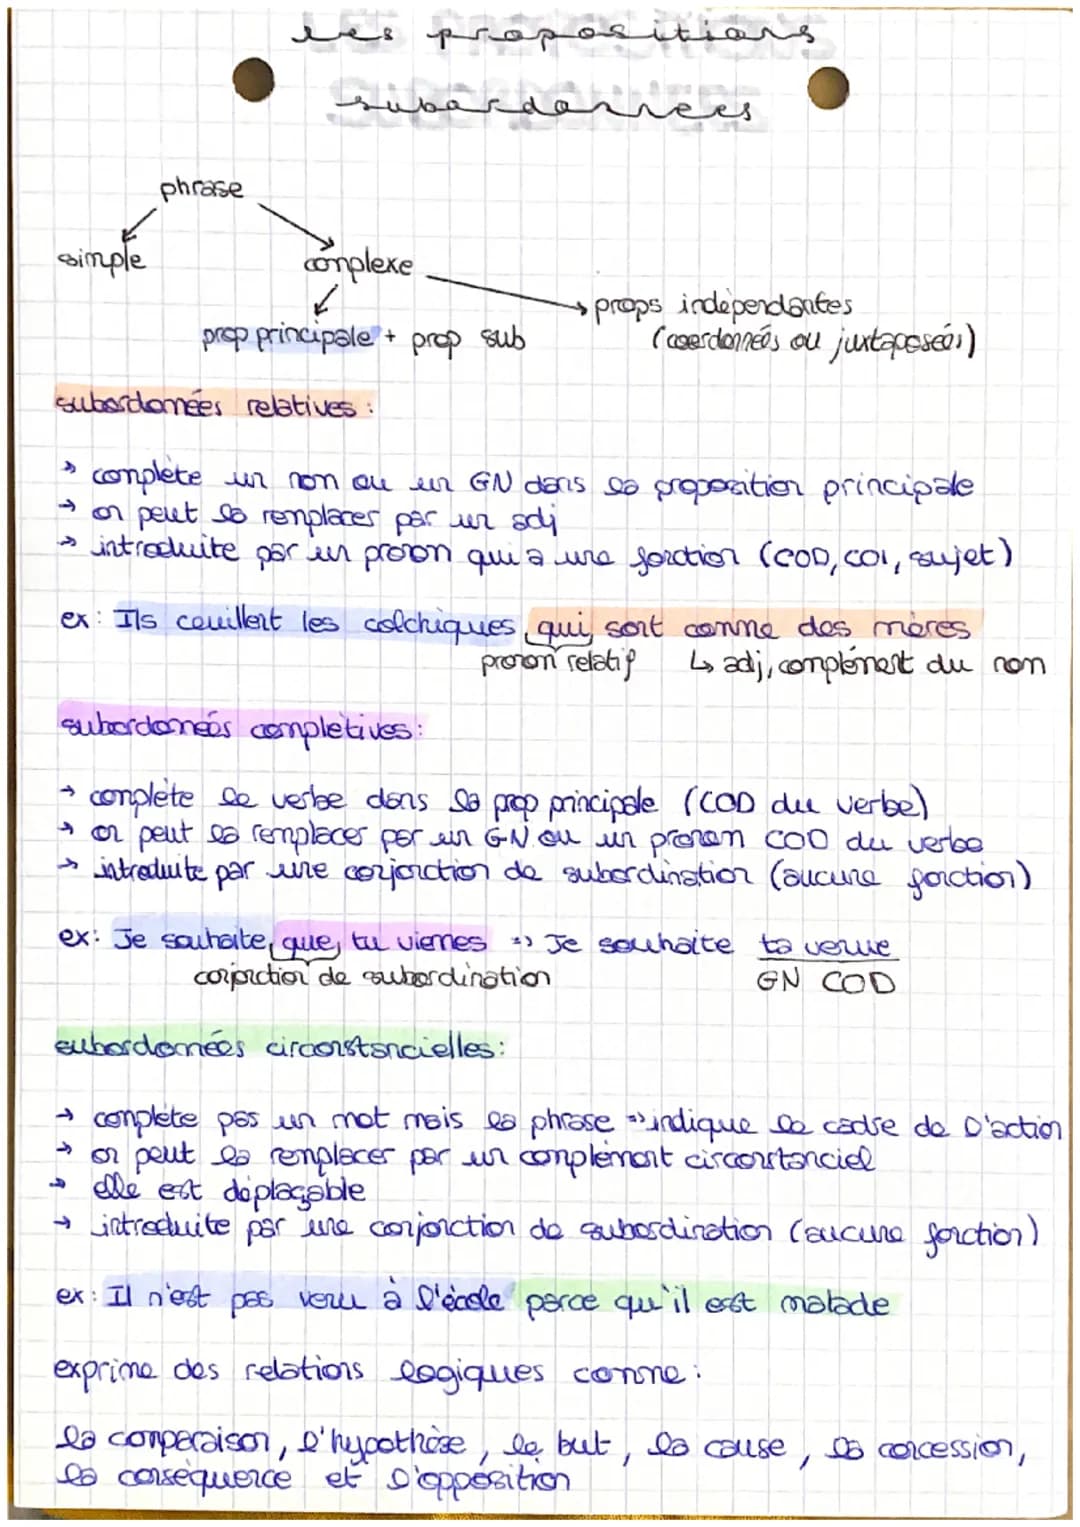 les propositions
subordonnées
phrase
simple
complexe
props indépendantes
prop principale + prop sub
(coordonnées ou juxtaposées)
subordonnées relatives :
→ complète un nom ou un GN dans la proposition principale
→ on peut la remplacer par un adj
→ introduite par un pronon qui a une fonction (COD, COI, sujet)
ex: Ils ceuillent les colchiques qui sont comme des mères
pronon relatif ↳ adj, complément du nom
subordonnées complétives:
→ complète le verbe dans la prop principale (COD du verbe)
→ on peut la remplacer par un GN ou un pronom COD du verbe
→ introduite par une conjonction de subordination (aucune fonction)
ex: Je souhaite que tu viennes => Je souhaite ta venue
conjonction de subordination GN COD
subordonnées circonstancielles:
→ complète pas un mot mais la phrase => indique le cadre de l'action
→ on peut la remplacer par un complément circonstanciel
→ elle est déplaçable
→ introduite par une conjonction de subordination (aucune fonction)
ex: Il n'est pas venu à l'école parce qu'il est malade
exprime des relations logiques comme:
la comparaison, l'hypothèse, le but, la cause, la concession,
la conséquence et l'opposition